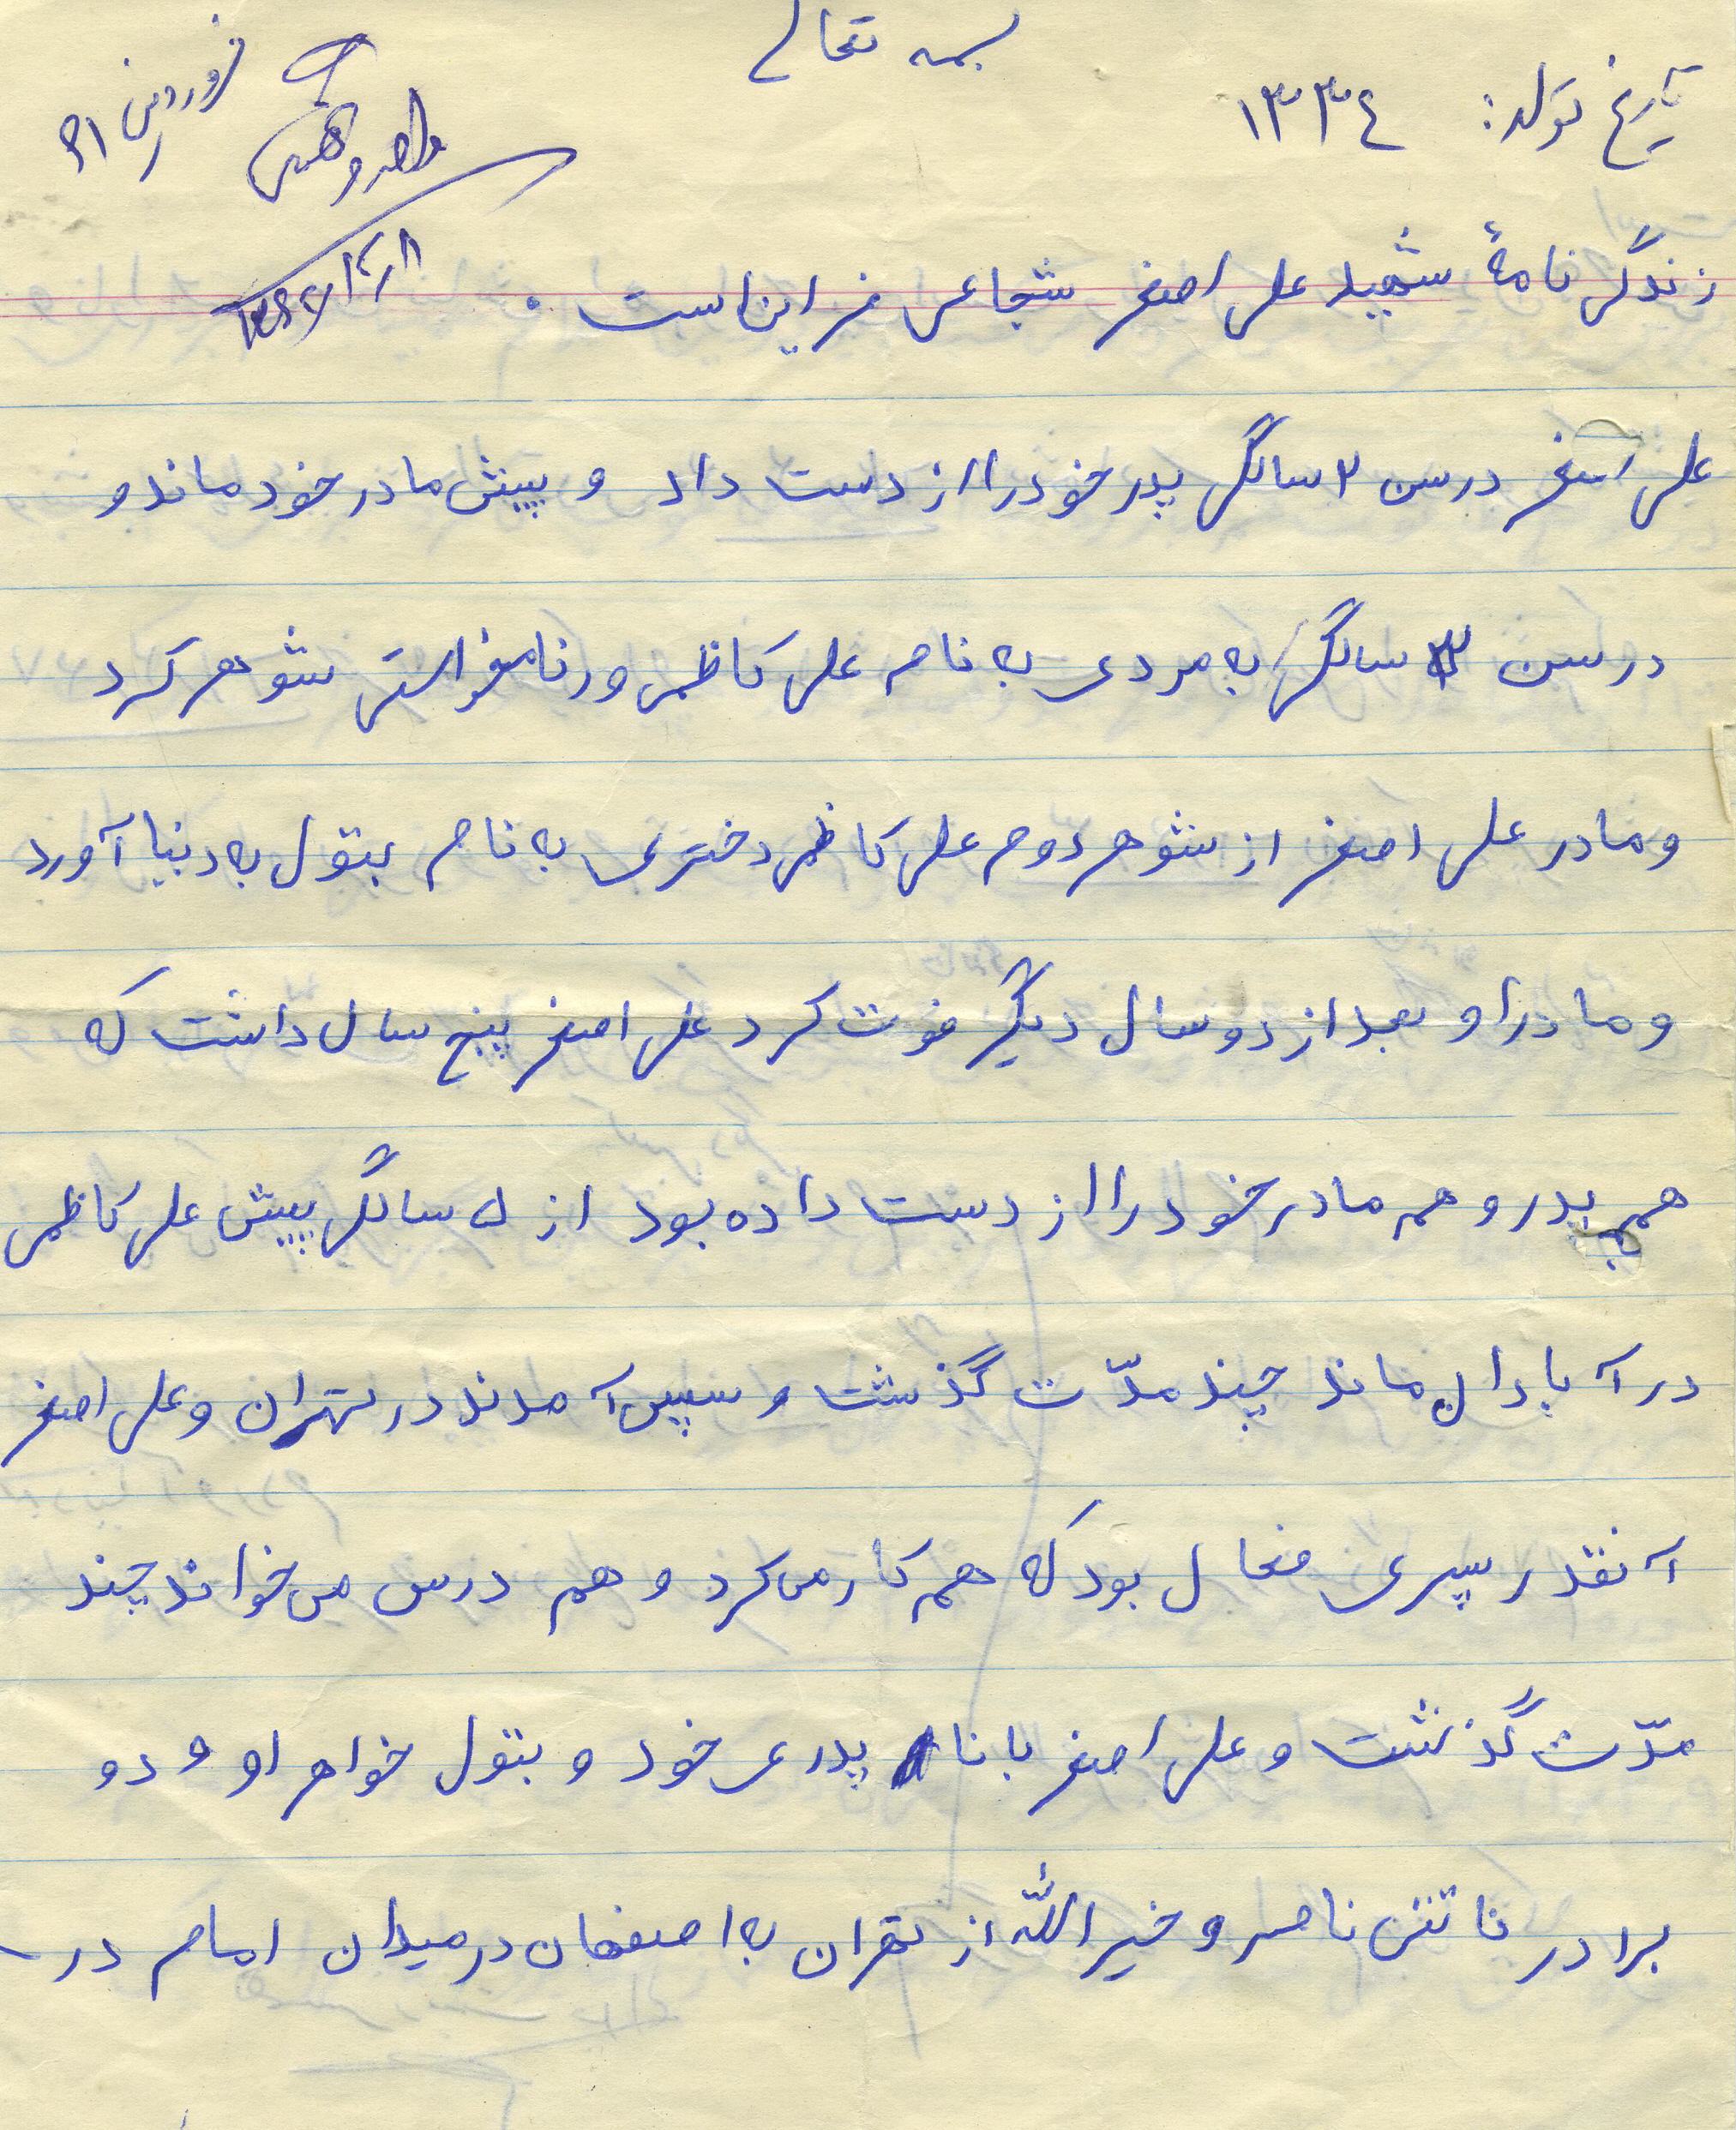 بسمه تعالی
تاریخ تولد: ۱۳۳٤
فروردین ۶۱
زندگی نامهٔ شهید علی اصغر شجاعی فر این است.
علی اصغر در سن ۲ سالگی پدر خود را از دست داد و پیش مادر خود ماند و
در سن ۳ سالگی به مردی به نام علی کاظمی ورنامخواستی شوهر کرد
و مادر علی اصغر از شوهر دوم علی کاظمی دختری به نام بتول به دنیا آورد
و مادر او بعد از دو سال دیگر فوت کرد علی اصغر پنج سال داشت که
هم پدر و هم مادر خود را از دست داده بود از ۵ سالگی پیش علی کاظمی
در آبادان ماند چند مدّت گذشت و سپس آمدند در تهران و علی اصغر
آنقدر پسری فعال بود که هم کار می کرد و هم درس می خواند چند
مدّت گذشت و علی اصغر با نا پدری خود و بتول خواهر او و دو
برادر ناتنی ناصر و خیرالله از تهران به اصفهان در میدان امام در